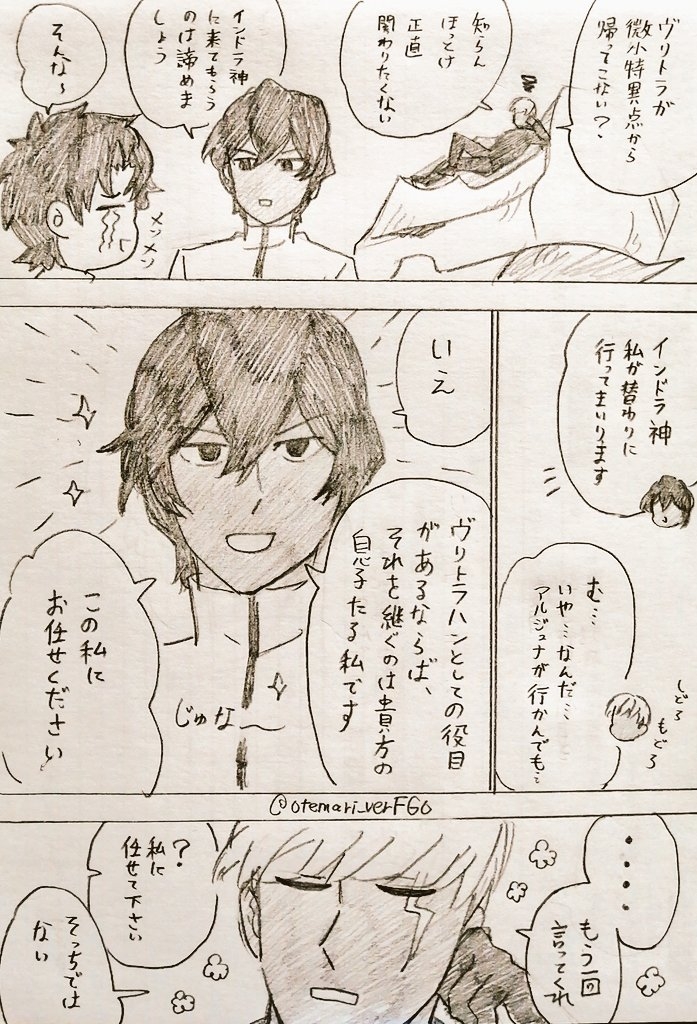 ヴリトラが
微小特異点から
帰ってこない？
知らん
ほっとけ
正直
関わりたくない
インドラ神
に来てもらう
のは諦めま
しょう
そんな〜
メソメソ
インドラ神
私が替わりに
行ってまいります
む…
いや…なんだ…
アルジュナが行かんでも…
しどろ
もどろ
いえ
ヴリトラハンとしての役目
があるならば、
それを継ぐのは貴方の
息子たる私です
じゅな〜
この私に
お任せください
@otemari_verFGO
・・・・
もう一回
言ってくれ
？
私に
任せて下さい
そっちでは
ない